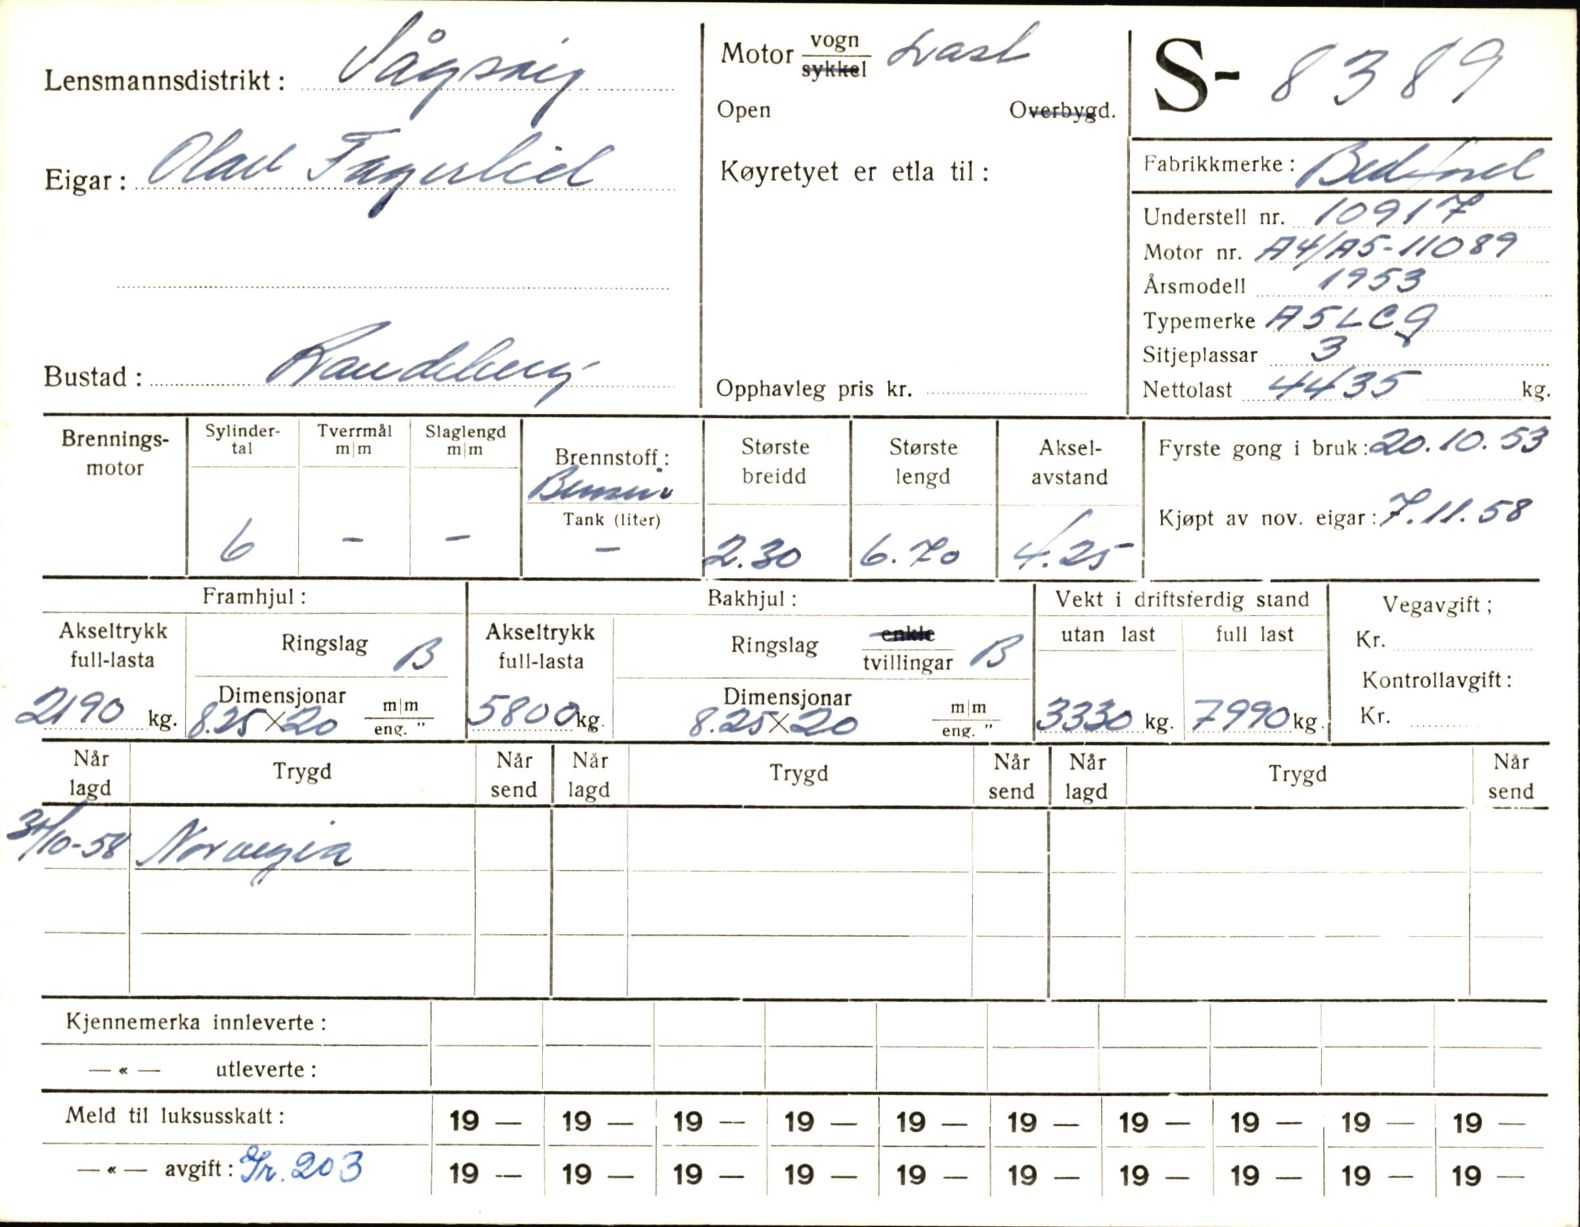 Lensmannsdistrikt: Vågsøy
Eigar: Olav Fagerlid
Bustad: Raudeberg
Motor vogn Last
sykkel
Open Overbygd.
Køyretyet er etla til:
Opphavleg pris kr.
S- 8389
Fabrikkmerke: Bedford
Understell nr. 10917
Motor nr. A4/A5-11089
Årsmodell 1953
Typemerke A5LCG
Sitjeplassar 3
Nettolast 4435 kg.
Brennings-
motor
Sylinder-
tal
6
Tverrmål
m|m
—
Slaglengd
m|m
—
Brennstoff:
Bensin
Tank (liter)
—
Største
breidd
2.30
Største
lengd
6.70
Aksel-
avstand
4.25
Fyrste gong i bruk: 20.10.53
Kjøpt av nov. eigar: 7.11.58
Framhjul:
Akseltrykk
full-lasta
2190 kg.
Ringslag B
Dimensjonar m|m
8.25×20 eng. "
Bakhjul:
Akseltrykk
full-lasta
5800 kg.
Ringslag enkle
tvillingar B
Dimensjonar m|m
8.25×20 eng. "
Vekt i driftsferdig stand
utan last full last
3330 kg. 7990 kg.
Vegavgift;
Kr.
Kontrollavgift:
Kr.
Når
lagd Trygd Når
send Når
lagd Trygd Når
send Når
lagd Trygd Når
send
/10-58 Norvegia
Kjennemerka innleverte:
— « — utleverte:
Meld til luksusskatt: 19 — 19 — 19 — 19 — 19 — 19 — 19 — 19 — 19 — 19 —
— « — avgift: Gr. 203 19 — 19 — 19 — 19 — 19 — 19 — 19 — 19 — 19 — 19 —